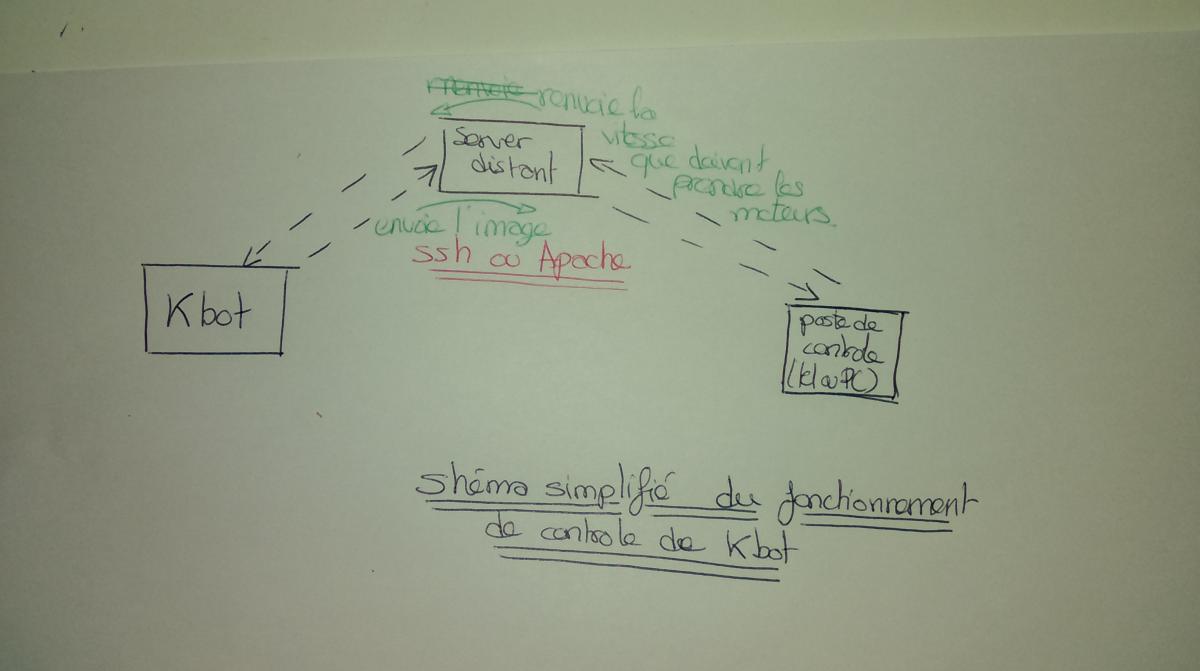 renvoie la
vitesse
que doivent
prendre les
moteurs.
Server
distant
envoie l'image
ssh ou Apache
Kbot
poste de
controle
(tel ou PC)
Shéma simplifié du fonctionnement
de controle de Kbot